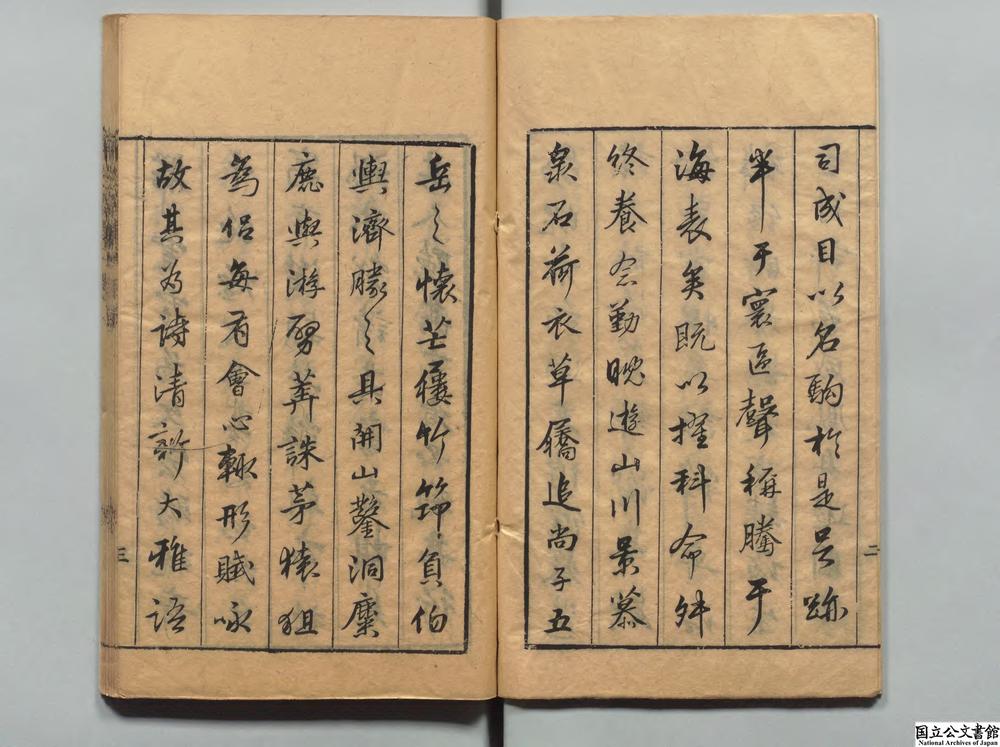 司成目以名駒於是足跡
半于寰區聲稱騰于
海表矣既以擢科命舛
終養念勤晚遊山川景慕
泉石荷衣草屩追尚子五
二
岳之懷芒屨竹筇負伯
輿濟勝之具開山鑿洞麋
鹿與游莽誅茅猿狙
為侶每有會心輒形賦咏
故其為詩清新大雅語
三
国立公文書館
National Archives of Japan